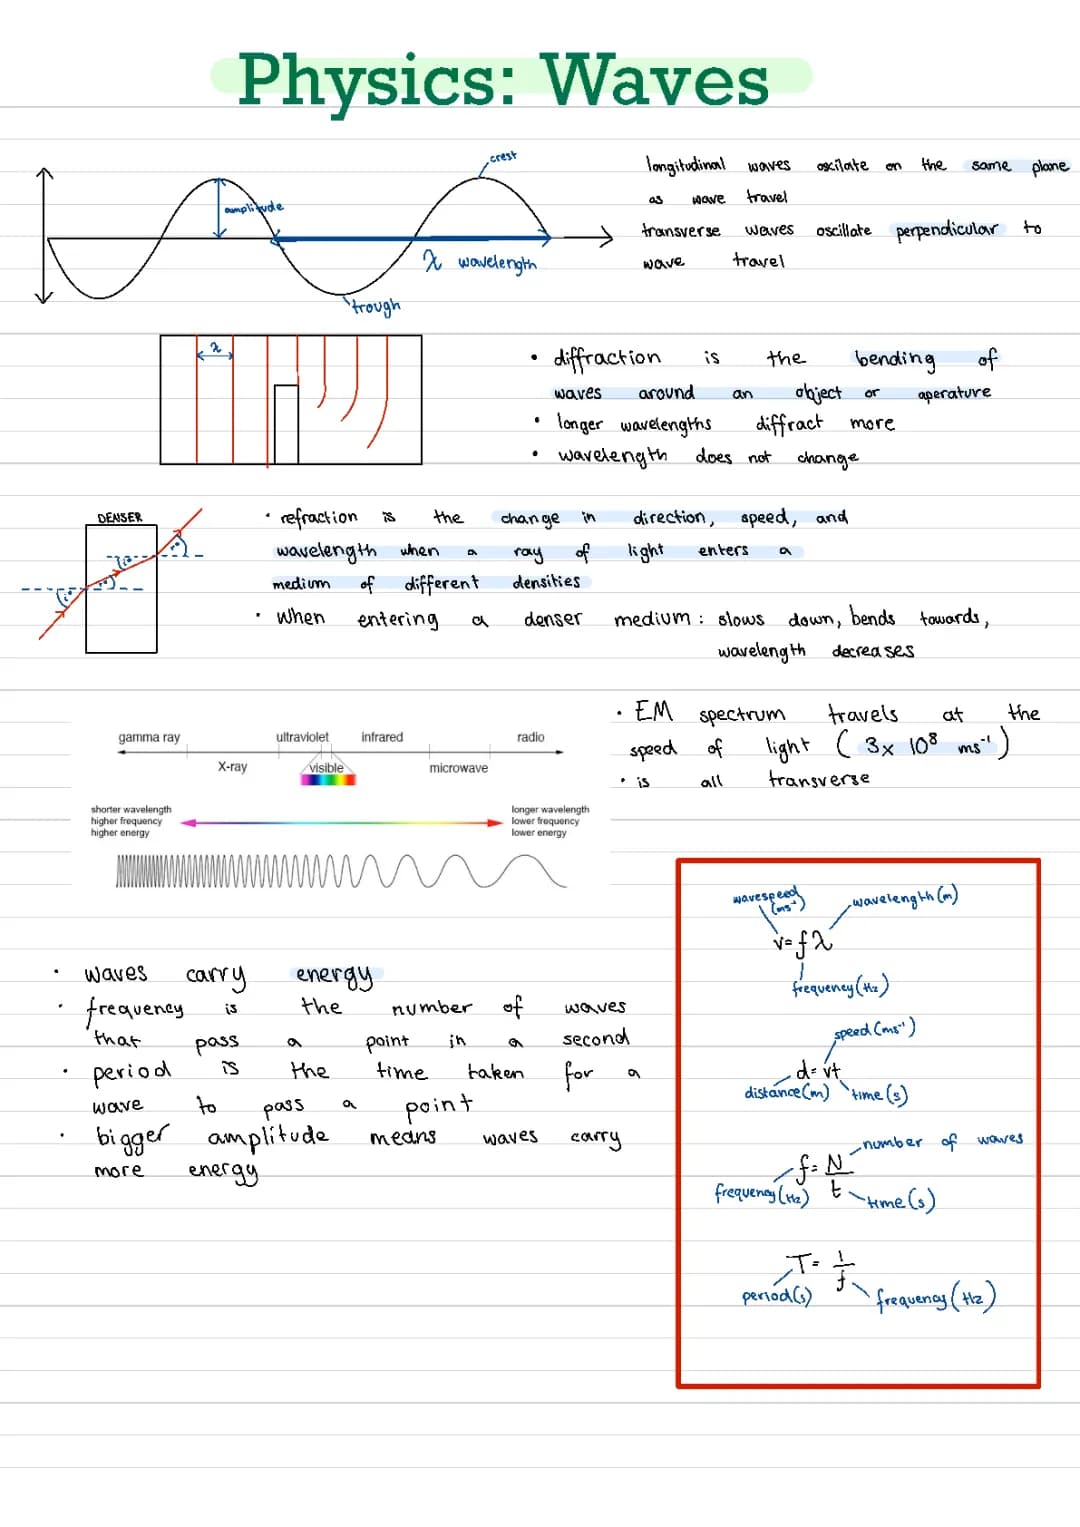 Physics: Waves
crest
amplitude
λ wavelength
trough
longitudinal waves oscilate on the same plane
as wave travel
transverse waves oscillate perpendicular to
wave travel
λ
• diffraction is the bending of
waves around an object or aperature
• longer wavelengths diffract more
• wavelength does not change
DENSER
i°
r°
i°
r°
• refraction is the change in direction, speed, and
wavelength when a ray of light enters a
medium of different densities
• when entering a denser medium: slows down, bends towards,
wavelength decreases
gamma ray ultraviolet infrared radio
X-ray visible microwave
shorter wavelength
higher frequency
higher energy
longer wavelength
lower frequency
lower energy
• EM spectrum travels at the
speed of light (3x 10⁸ ms⁻¹)
• is all transverse
• waves carry energy
• frequency is the number of waves
that pass a point in a second
• period is the time taken for a
wave to pass a point
• bigger amplitude means waves carry
more energy
wavespeed
(ms⁻¹)
wavelength (m)
v=fλ
frequency (Hz)
speed (ms⁻¹)
d=vt
distance (m) time (s)
number of waves
f=N/t
frequency (Hz) time (s)
T=1/f
period (s) frequency (Hz)